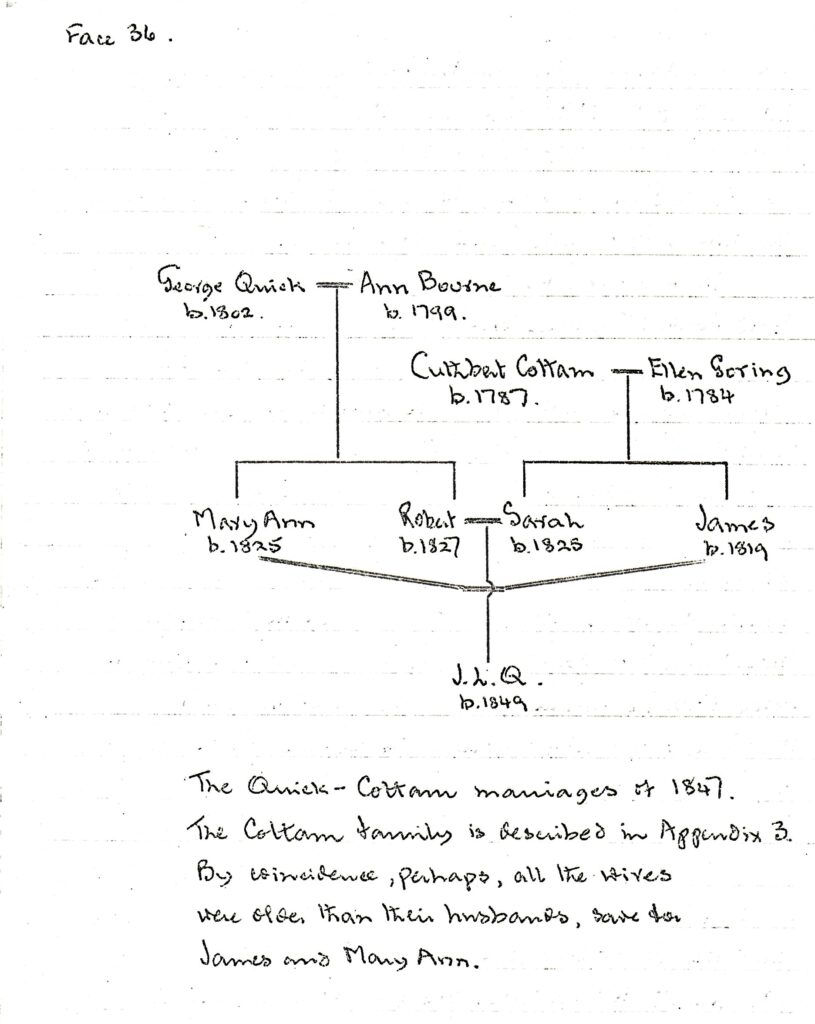 Face 36.
George Quick Ann Bourne
b.1802. b. 1799.
Cuthbert Cottam Ellen Goring
b.1787. b.1784
Mary Ann Robert Sarah James
b.1825 b.1827 b.1825 b.1819
J.L.Q.
b.1849
The Quick-Cottam marriages of 1847.
The Cottam family is described in Appendix 3.
By coincidence, perhaps, all the wives
were older than their husbands, save for
James and Mary Ann.